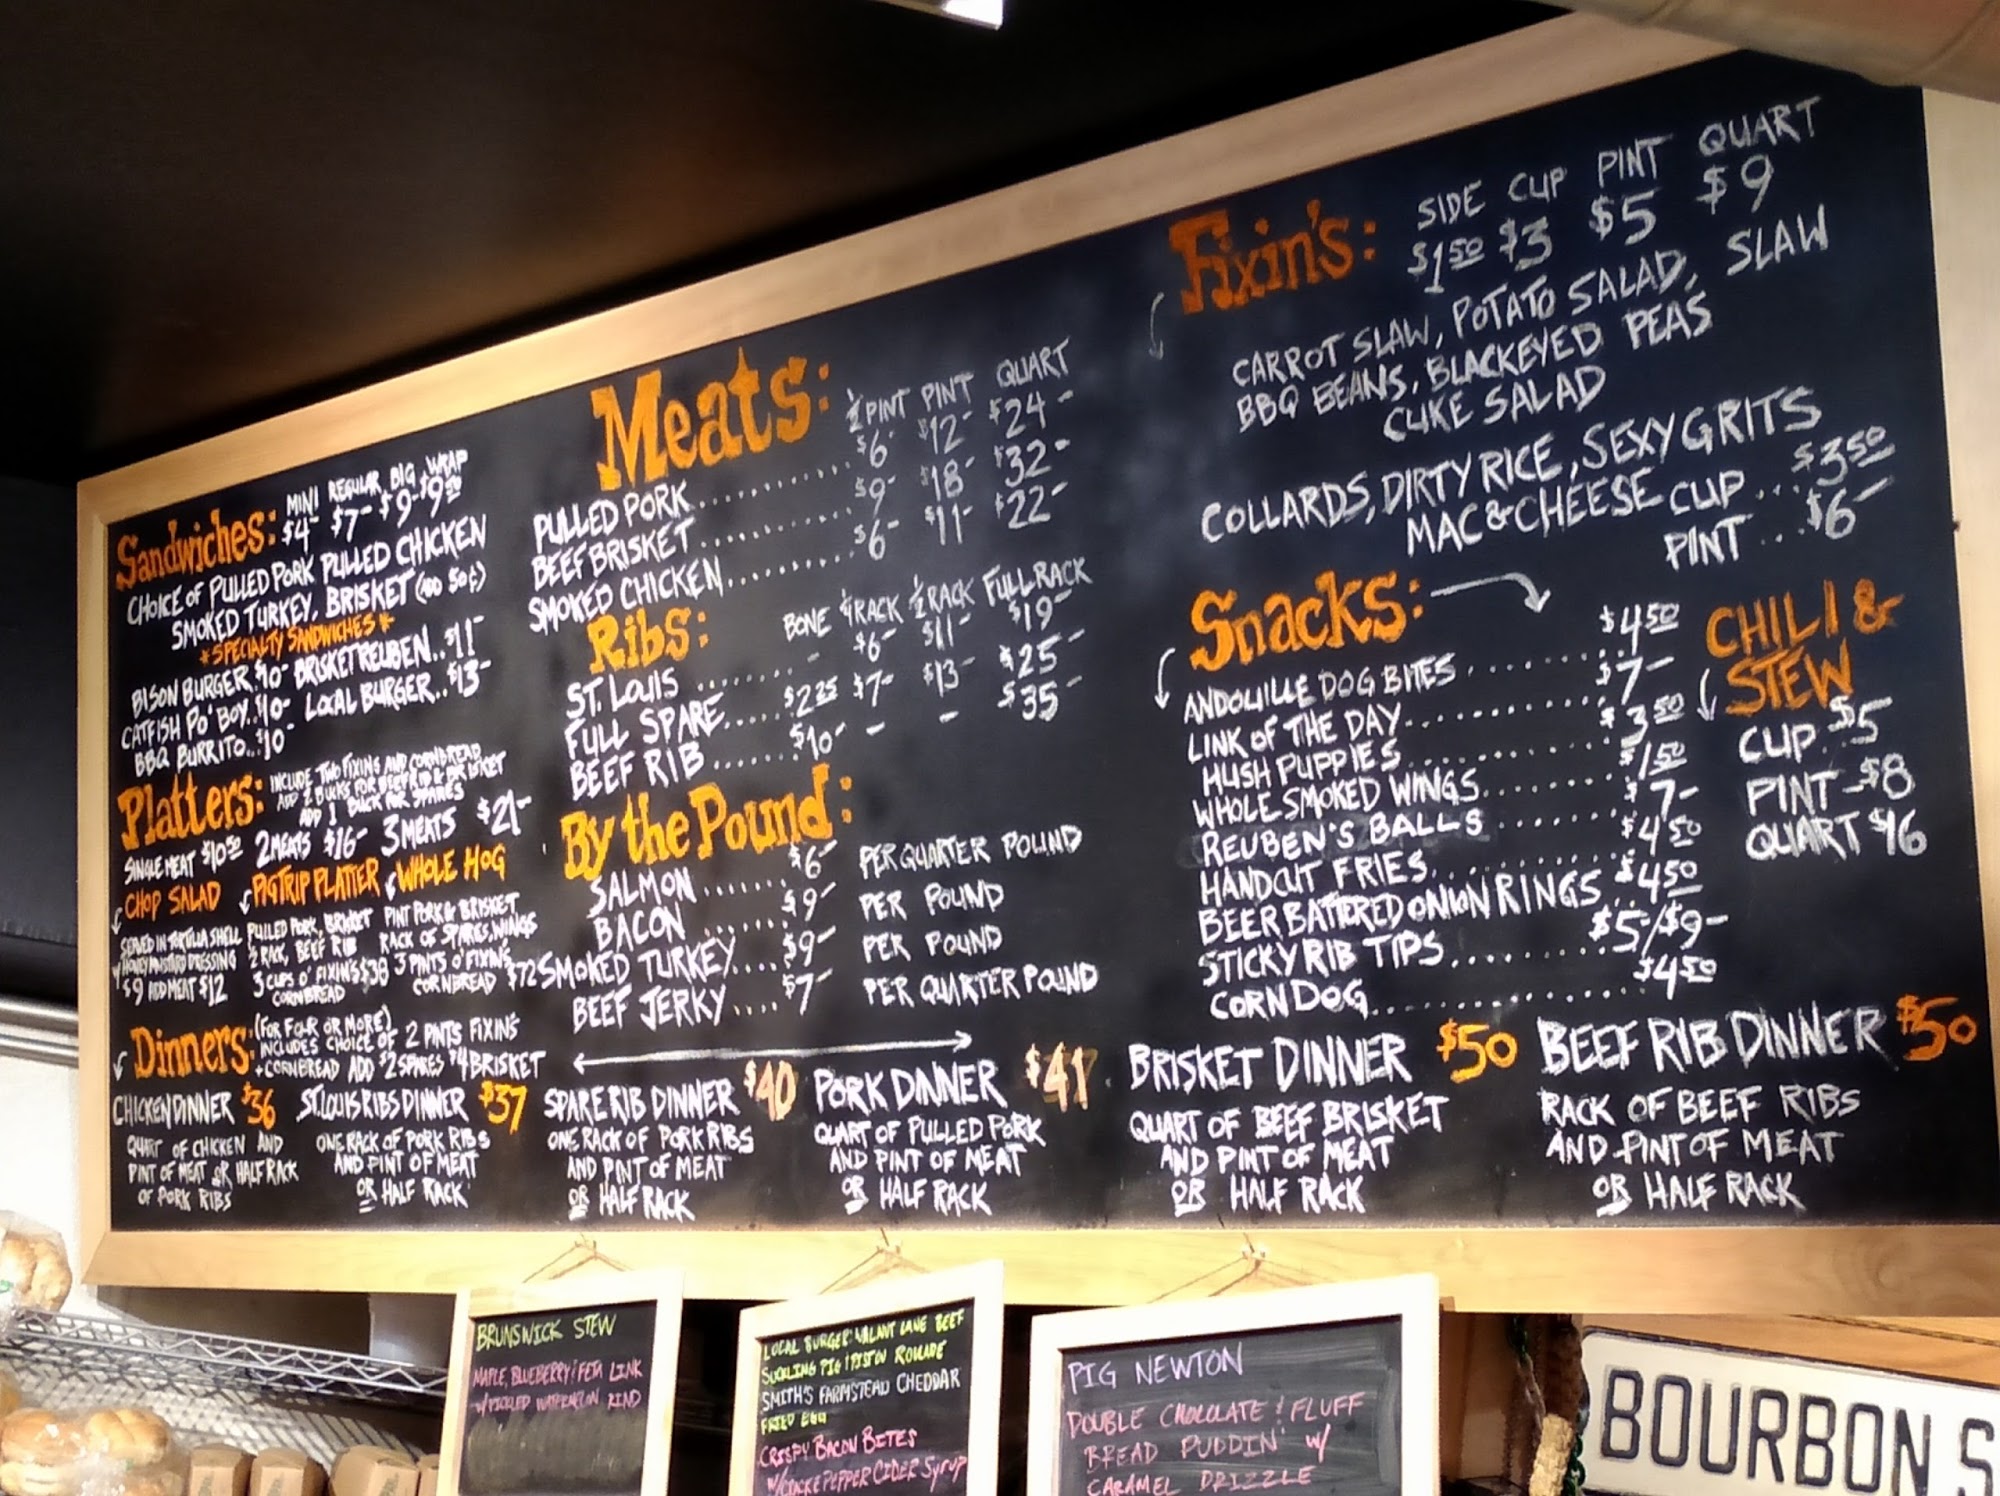 Sandwiches: MINI REGULAR BIG WRAP
$4- $7- $9- $9.50
CHOICE OF PULLED PORK PULLED CHICKEN
SMOKED TURKEY, BRISKET (ADD 50¢)
*SPECIALTY SANDWICHES*
BISON BURGER. $10- BRISKET REUBEN.. $11-
CATFISH PO' BOY.. $10- LOCAL BURGER.. $13-
BBQ BURRITO.. $10-
Platters: INCLUDE TWO FIXINS AND CORNBREAD
ADD 2 BUCKS FOR BEEF RIB & BRISKET
ADD 1 BUCK FOR SPARES
SINGLE MEAT $10.50 2 MEATS $16- 3 MEATS $21-
CHOP SALAD
SERVED IN TORTILLA SHELL
W/ HONEY MUSTARD DRESSING
$9 ADD MEAT $12
PIG TRIP PLATTER
PULLED PORK, BRISKET
1/2 RACK, BEEF RIB
3 CUPS O' FIXIN'S $38
CORNBREAD
WHOLE HOG
PINT PORK & BRISKET
RACK OF SPARES, WINGS
3 PINTS O' FIXIN'S
CORNBREAD $72
Meats: 1/2 PINT PINT QUART
PULLED PORK.......... $6- $12- $24-
BEEF BRISKET.......... $9- $18- $32-
SMOKED CHICKEN.......... $6- $11- $22-
Ribs: BONE 1/4 RACK 1/2 RACK FULL RACK
ST. LOUIS ........ - $6- $11- $19-
FULL SPARE..... $2.25 $7- $13- $25-
BEEF RIB ...... $10- - - $35-
By the Pound:
SALMON ....... $6- PER QUARTER POUND
BACON ....... $9- PER POUND
SMOKED TURKEY.... $9- PER POUND
BEEF JERKY .... $7- PER QUARTER POUND
Fixin's: SIDE CUP PINT QUART
$1.50 $3 $5 $9
CARROT SLAW, POTATO SALAD, SLAW
BBQ BEANS, BLACKEYED PEAS
CUKE SALAD
COLLARDS, DIRTY RICE, SEXY GRITS
MAC & CHEESE CUP ... $3.50
PINT ... $6-
Snacks:
ANDOUILLE DOG BITES ........ $4.50
LINK OF THE DAY............ $7-
HUSH PUPPIES ............ $3.50
WHOLE SMOKED WINGS.......... $1.50
REUBEN'S BALLS ......... $7-
HANDCUT FRIES............ $4.50
BEER BATTERED ONION RINGS.. $4.50
STICKY RIB TIPS.......... $5-/$9-
CORN DOG................ $4.50
CHILI &
STEW
CUP $5
PINT $8
QUART $16
Dinners: (FOR FOUR OR MORE)
INCLUDES CHOICE OF 2 PINTS FIXINS
+ CORNBREAD ADD $2 SPARES $4 BRISKET
CHICKEN DINNER $36
QUART OF CHICKEN AND
PINT OF MEAT OR HALF RACK
OF PORK RIBS
ST. LOUIS RIBS DINNER $37
ONE RACK OF PORK RIBS
AND PINT OF MEAT
OR HALF RACK
SPARE RIB DINNER $40
ONE RACK OF PORK RIBS
AND PINT OF MEAT
OR HALF RACK
PORK DINNER $41
QUART OF PULLED PORK
AND PINT OF MEAT
OR HALF RACK
BRISKET DINNER $50
QUART OF BEEF BRISKET
AND PINT OF MEAT
OR HALF RACK
BEEF RIB DINNER $50
RACK OF BEEF RIBS
AND PINT OF MEAT
OR HALF RACK
BRUNSWICK STEW
MAPLE, BLUEBERRY & FETA LINK
W/ PICKLED WATERMELON RIND
LOCAL BURGER: WALNUT LANE BEEF
SUCKLING PIG
SMITH'S FARMSTEAD CHEDDAR
FRIED EGG
CRISPY BACON BITES
W/ CRACKED PEPPER CIDER SYRUP
PIG NEWTON
DOUBLE CHOCOLATE & FLUFF
BREAD PUDDIN' W/
CARAMEL DRIZZLE
BOURBON S